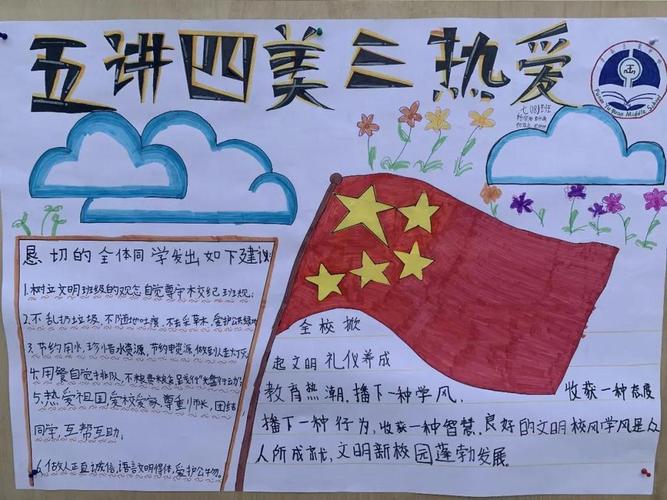 五讲四美三热爱
Yuwan Middle School
七(8)班
恳切的全体同学发出如下建议
1.树立文明班级的观念自觉尊守本校纪班规;
2.不乱扔垃圾,不随地吐痰,不去采草木,爱护公共绿地
3.节约用水,珍惜水资源,节约电资源,做到人走灯灭
4.用餐自觉排队,不
5.热爱祖国爱校爱家尊重师长,团结
同学,互帮互助.
做人正直诚信,语言文明得体,爱护公物.
全校掀
起文明礼仪养成
教育热潮.播下一种学风, 收获一种态度
播下一种行为,收获一种智慧.良好的文明校风学风是人
人所成就,文明新校园蓬勃发展.